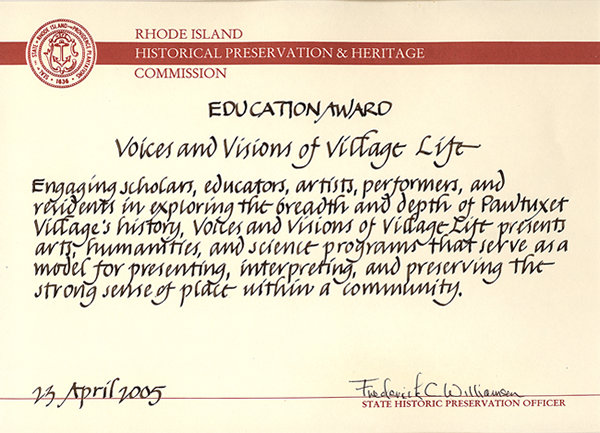 SEAL • STATE • RHODE ISLAND • AND PROVIDENCE PLANTATIONS
HOPE
• 1636 •
RHODE ISLAND
HISTORICAL PRESERVATION & HERITAGE
COMMISSION
EDUCATION AWARD
Voices and Visions of Village Life
Engaging scholars, educators, artists, performers, and
residents in exploring the breadth and depth of Pawtuxet
Village's history, Voices and Visions of Village Life presents
arts, humanities, and science programs that serve as a
model for presenting, interpreting, and preserving the
strong sense of place within a community.
23 April 2005
Frederick C Williamson
STATE HISTORIC PRESERVATION OFFICER